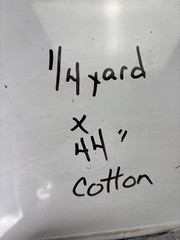 1/4 yard
x
44"
cotton